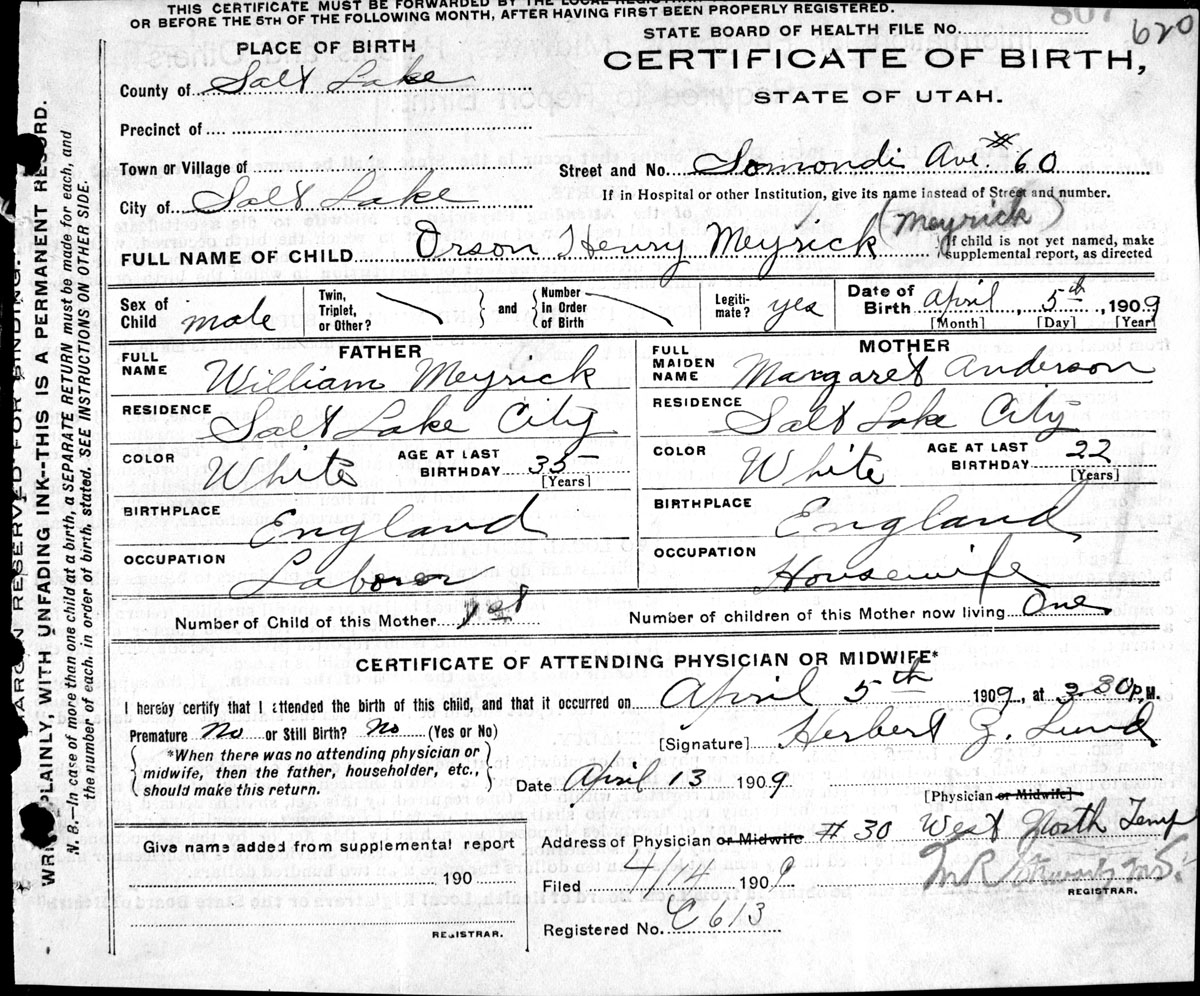 THIS CERTIFICATE MUST BE FORWARDED BY THE LOCAL
OR BEFORE THE 5TH OF THE FOLLOWING MONTH, AFTER HAVING FIRST BEEN PROPERLY REGISTERED.
STATE BOARD OF HEALTH FILE No. 620
PLACE OF BIRTH
CERTIFICATE OF BIRTH,
STATE OF UTAH.
County of Salt Lake
Precinct of
Town or Village of
Street and No. Somondi Ave. # 60
City of Salt Lake
If in Hospital or other Institution, give its name instead of Street and number.
FULL NAME OF CHILD Orson Henry Meyrick (Meyrick)
(If child is not yet named, make supplemental report, as directed
Sex of Child male
Twin, Triplet, or Other?
and
Number In Order of Birth
Legiti-mate? yes
Date of Birth April 5th, 1909
[Month] [Day] [Year]
FATHER
FULL NAME William Meyrick
RESIDENCE Salt Lake City
COLOR White AGE AT LAST BIRTHDAY 35 [Years]
BIRTHPLACE England
OCCUPATION Laborer
MOTHER
FULL MAIDEN NAME Margaret Anderson
RESIDENCE Salt Lake City
COLOR White AGE AT LAST BIRTHDAY 22 [Years]
BIRTHPLACE England
OCCUPATION Housewife
Number of Child of this Mother 1st Number of children of this Mother now living One
CERTIFICATE OF ATTENDING PHYSICIAN OR MIDWIFE*
I hereby certify that I attended the birth of this child, and that it occurred on April 5th 1909, at 3.30 P.M.
Premature No or Still Birth? No (Yes or No)
*When there was no attending physician or
midwife, then the father, householder, etc.,
should make this return.
[Signature] Herbert Z. Lund
Date April 13 1909
[Physician or Midwife]
Address of Physician or Midwife # 30 West North Temp
Give name added from supplemental report
190
REGISTRAR.
Filed 4/14 1909
REGISTRAR.
Registered No. C 613
MARGIN RESERVED FOR BINDING.
WRITE PLAINLY, WITH UNFADING INK--THIS IS A PERMANENT RECORD.
N. B.—In case of more than one child at a birth, a SEPARATE RETURN must be made for each, and
the number of each, in order of birth, stated. SEE INSTRUCTIONS ON OTHER SIDE.